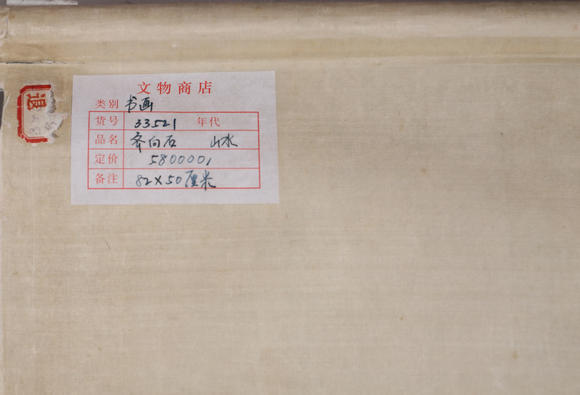 文物商店
类别 书画
货号 33521 年代
品名 齐白石 山水
定价 580000,
备注 82×50厘米
退